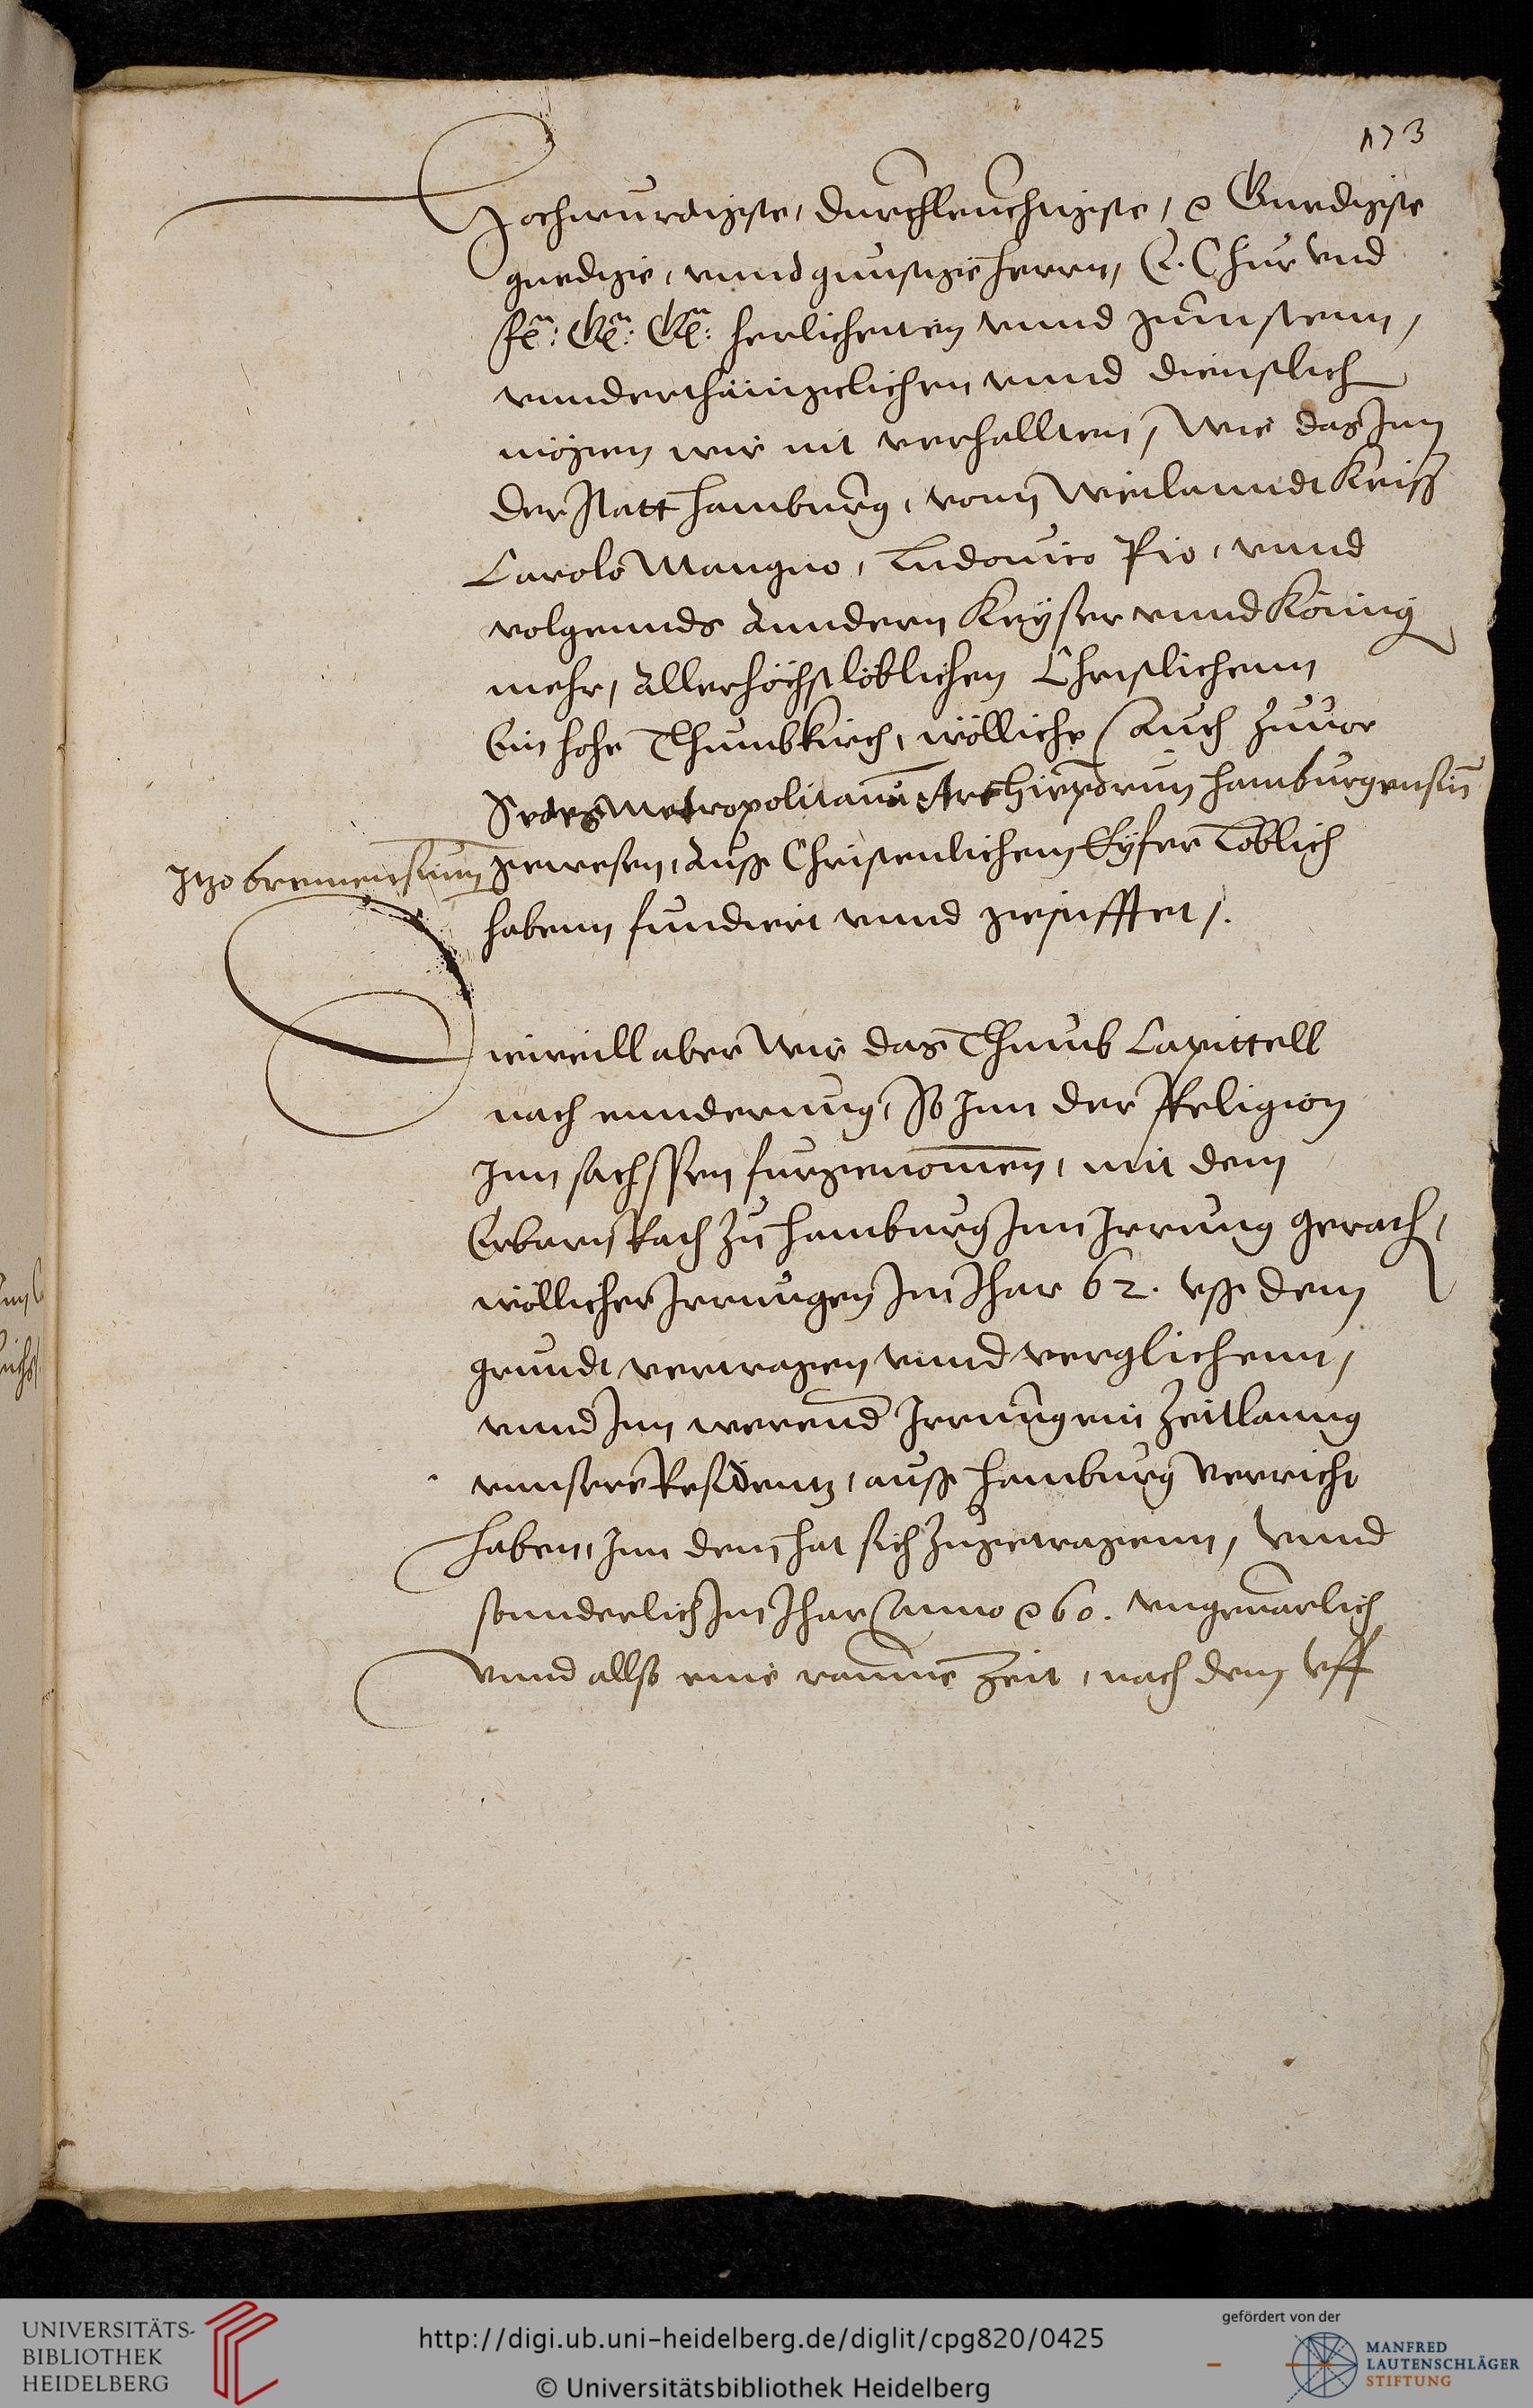 173
Hochwurdigste, durchleuchtigste, Gnedigste
gnedige, vnnd gunstige herrn, E. Chur vnd
herlicheiten vnnd gunstenn,
vnnderthänigelichen vnnd dienstlich
mögen wir nit verhallten, Wie das Inn
der Statt Hamburg, vonn Weilanndt Keiß
Carolo Mangno, Ludouico Pio, vnnd
volgennds Anndern Keyser vnnd Könnig
mehr, Allerhöchstlöblichen Christlichenn
Ein hohe Thumbkirch, wölliche Auch Zuuor
Sedes Metropolitana Hamburgensium
Itzo bremensium gewesen, Auß Christenlichem Eyfer Loblich
habenn fundiert vnnd gestifftet,.
Dieweill aber Wir das Thumb Capittell
nach ennderung, So Inn der Religion
Inn sachssen furgenomen, mit dem
Erbarn Rath Zu Hamburg Inn Irrung gerath,
wöllicher Irrungen Im Ihar 62. vß dem
grundt vertragen vnnd verglichenn,
vnnd Inn werend Irrung ein Zeitlanng
vnnsere Residentz, auß Hamburg Verricht
haben, Inn dem hat sich Zugetragenn, Vnnd
sonnderlich Im Ihar Anno 60. vngeuarlich
Vnnd allso eine raume Zeit, nach dem Vff
UNIVERSITÄTS-
BIBLIOTHEK
HEIDELBERG
http://digi.ub.uni-heidelberg.de/diglit/cpg820/0425
© Universitätsbibliothek Heidelberg
gefördert von der
MANFRED
LAUTENSCHLÄGER
STIFTUNG